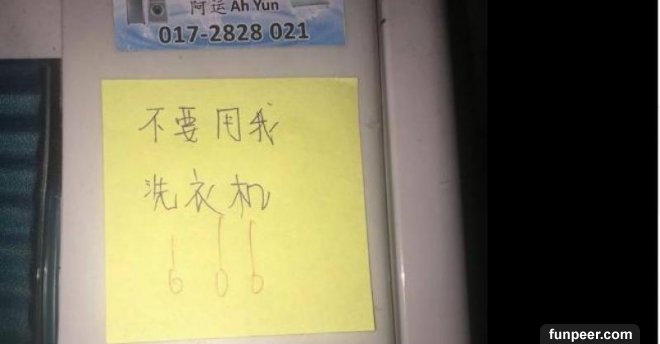 阿运 Ah Yun
017-2828 021
不要用我
洗衣机
666
funpeer.com